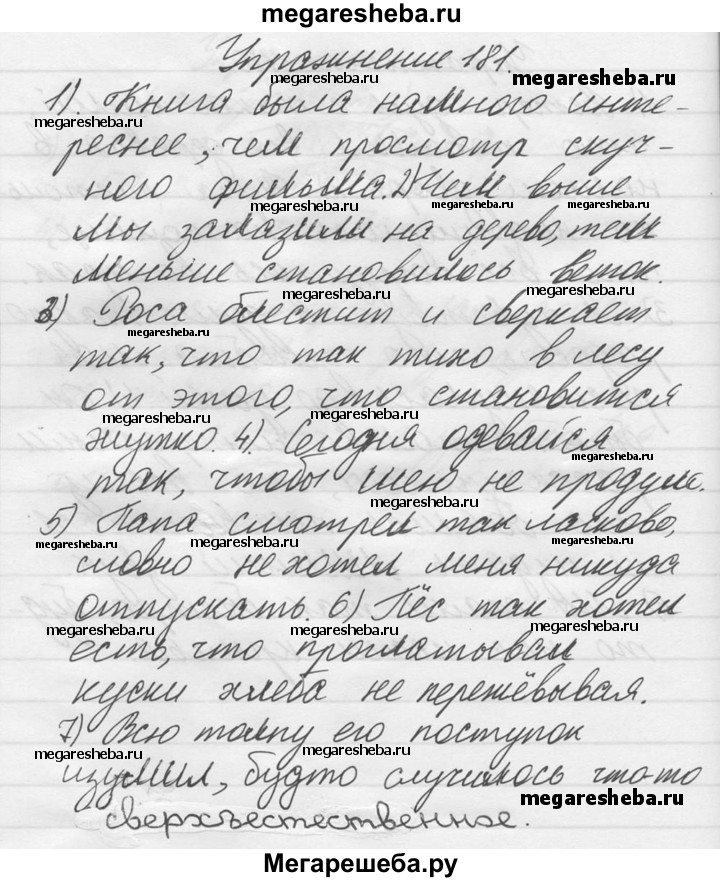 megaresheba.ru
Упражнение 181.
megaresheba.ru
megaresheba.ru
1). Книга была намного инте-
megaresheba.ru
megaresheba.ru
megaresheba.ru
реснее, чем просмотр скуч-
ного фильма. 2) Чем выше
megaresheba.ru
megaresheba.ru
megaresheba.ru
мы залазили на дерево, тем
меньше становилось веток.
megaresheba.ru
megaresheba.ru
3) Роса блестит и сверкает
megaresheba.ru
так, что так тихо в лесу
megaresheba.ru
от этого, что становится
megaresheba.ru
megaresheba.ru
жутко. 4). Сегодня одевайся
megaresheba.ru
так, чтобы шею не продуло.
megaresheba.ru
5) Папа смотрел так ласково,
megaresheba.ru
megaresheba.ru
megaresheba.ru
словно не хотел меня никуда
отпускать. 6) Пёс так хотел
megaresheba.ru
megaresheba.ru
megaresheba.ru
есть, что проглатывал
куски хлеба не пережёвывая.
megaresheba.ru
megaresheba.ru
7) Всю толпу его поступок
megaresheba.ru
megaresheba.ru
изумил, будто случилось что-то
megaresheba.ru
сверхъестественное.
Мегарешеба.ру